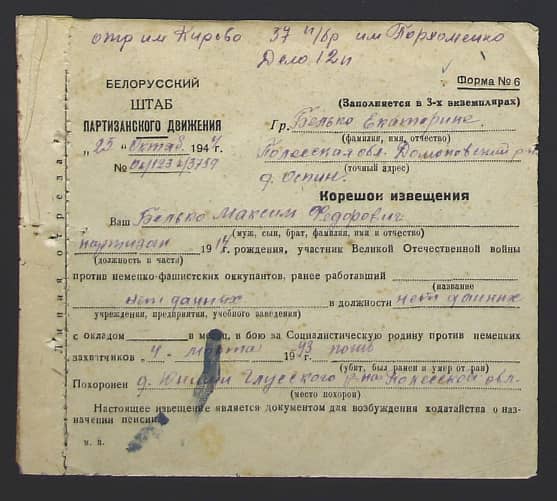 отр им Кирова 37 п/бр им Пархоменко
Дело 12п
Форма № 6
БЕЛОРУССКИЙ
ШТАБ
ПАРТИЗАНСКОГО ДВИЖЕНИЯ
„25“ Октяб. 1944 г.
№
(Заполняется в 3-х экземплярах)
Гр. Белько Екатерине
(фамилия, имя, отчество)
Полесская обл. Домановский р-н
(точный адрес)
д. Оспин
Корешок извещения
Ваш Белько Максим Федорович
(муж, сын, брат, фамилия, имя и отчество)
партизан 1914 г. рождения, участник Великой Отечественной войны
(должность и часть)
против немецко-фашистских оккупантов, ранее работавший
(название
нет данных в должности нет данных
учреждения, предприятия, учебного заведения)
с окладом в месяц, в бою за Социалистическую родину против немецких
захватчиков „4“ марта 1943 погиб
(убит, был ранен и умер от ран)
Похоронен д. Глусского р-на Полесской обл.
(место похорон)
Настоящее извещение является документом для возбуждения ходатайства о наз-
начении пенсии.
м. п.
Линия отреза